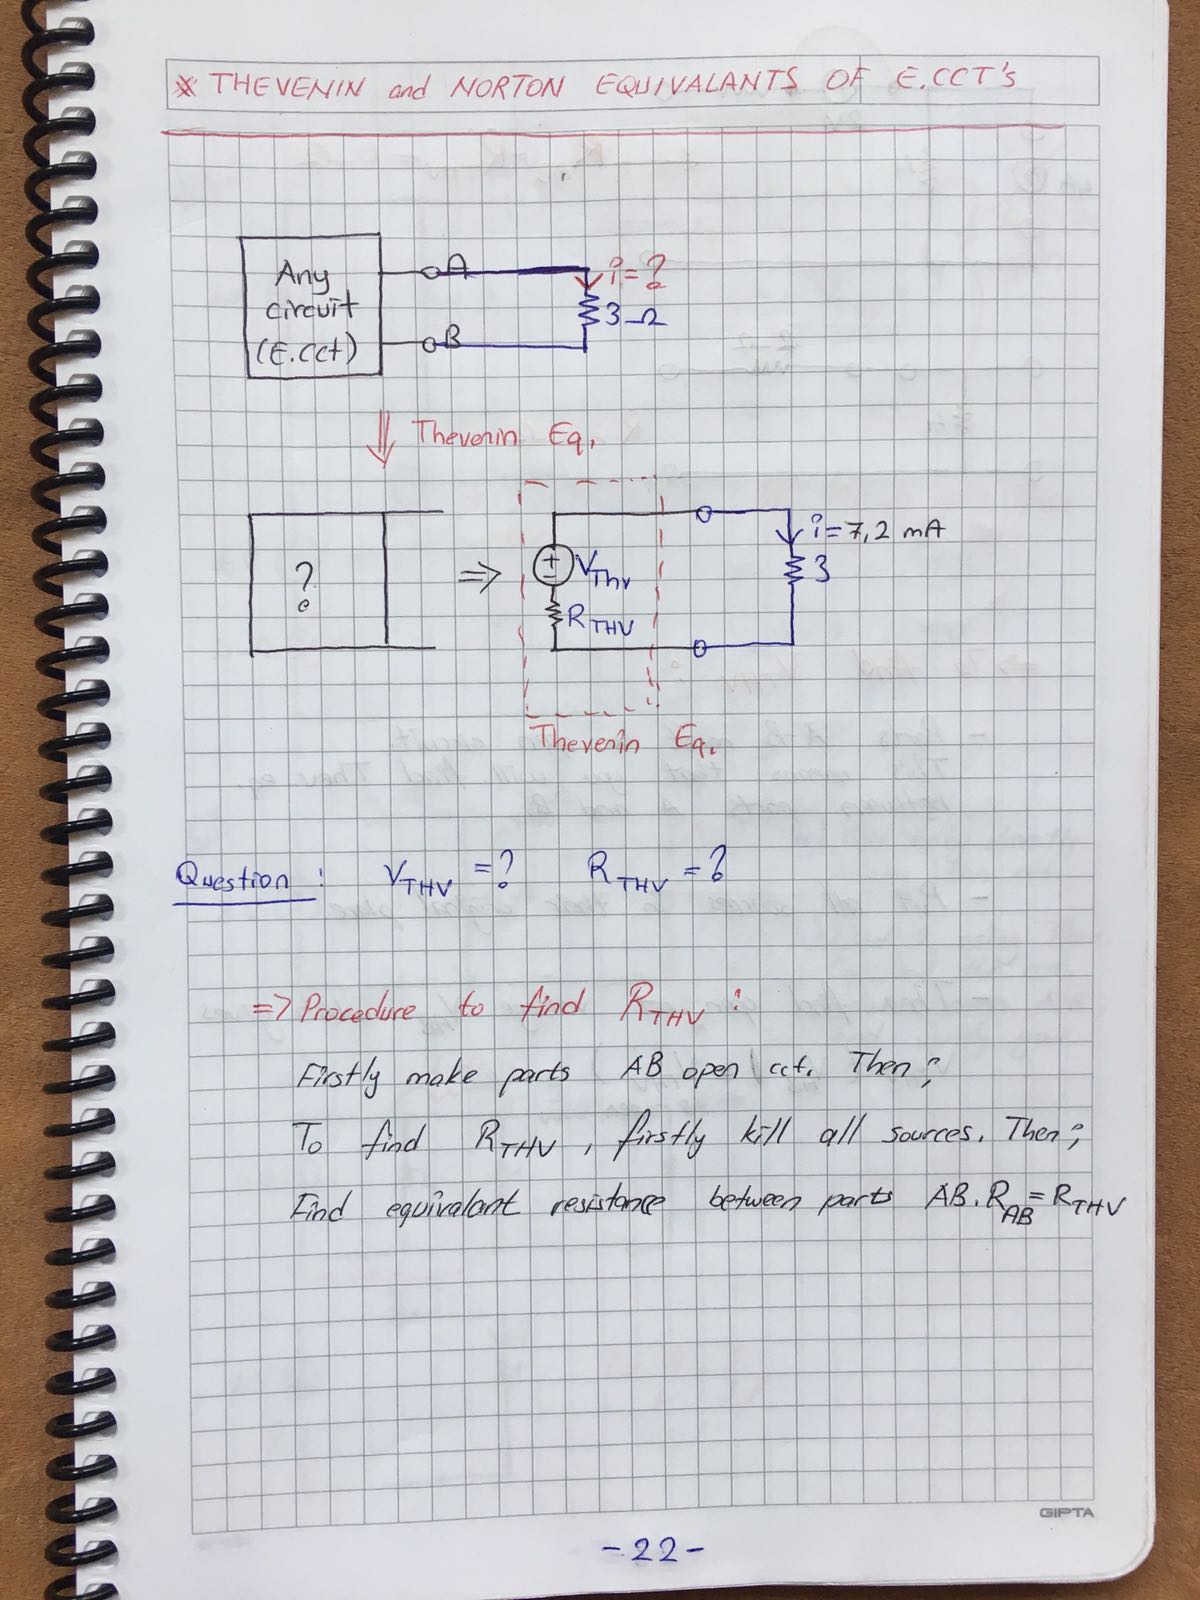 * THEVENIN and NORTON EQUIVALANTS OF E.CCT's
Any
circuit
(E.cct)
A
B
i=?
3 Ω
⇓ Thevenin Eq.
?
⇒
+
-
VThv
RTHV
i=7,2 mA
3
Thevenin Eq.
Question : VTHV =? RTHV =?
=> Procedure to find RTHV :
Firstly make parts AB open cct. Then;
To find RTHV , firstly kill all sources. Then;
Find equivalant resistance between parts AB. RAB=RTHV
GIPTA
-22-